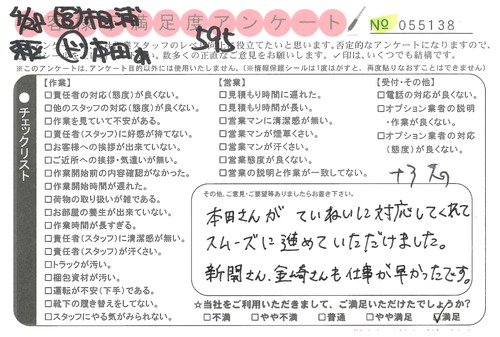 満足度アンケート
№ 055138
595
スタッフのレベル向上に役立てたいと思います。否定的なアンケートになりますので、
数多くの正直なご意見をお願いします。✓印は、いくつでも結構です。
※このアンケートは、アンケート目的以外には使用いたしません。(※情報保護シールは1度はがすと、再度貼りなおすことはできません)
チェックリスト
【作業】
□責任者の対応(態度)が良くない。
□他のスタッフの対応(態度)が良くない。
□作業を見ていて不安がある。
□責任者(スタッフ)に好感が持てない。
□お客様への挨拶が出来ていない。
□ご近所への挨拶・気遣いが無い。
□作業開始前の内容確認がなかった。
□作業開始時間が遅れた。
□荷物の取り扱いが雑である。
□お部屋の養生が出来ていない。
□作業時間が長すぎる。
□責任者(スタッフ)に清潔感が無い。
□責任者(スタッフ)が汗くさい。
□トラックが汚い。
□梱包資材が汚い。
□運転が不安(下手)である。
□靴下の履き替えをしてない。
□スタッフにやる気がみられない。
【営業】
□見積もり時間に遅れた。
□見積もり時間が長い。
□営業マンに清潔感が無い。
□営業マンが煙草くさい。
□営業マンが汗くさい。
□営業態度が良くない。
□営業の説明と作業が一致してない。
【受付・その他】
□電話の対応が良くない。
□オプション業者の説明
・作業が良くない。
□オプション業者の対応
(態度)が良くない。
その他、ご意見・ご要望等ありましたらお書き下さい。
本田さんが ていねいに対応してくれて
スムーズに進めていただけました。
新関さん、金崎さんも仕事が早かったです。
☆当社をご利用いただきまして、ご満足いただけたでしょうか?
□不満 □やや不満 □普通 □やや満足 ☑満足